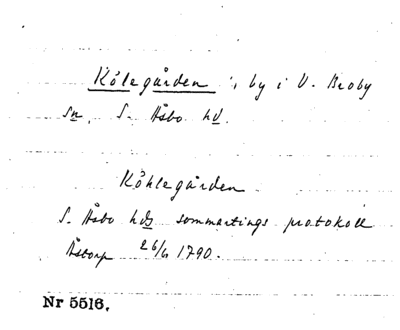 Kölegården, by i V. Broby
sn, S. Åsbo hd.
Köhlegården
S. Åsbo hds sommartings protokoll
Åstorp 26/6 1790.
Nr 5516.